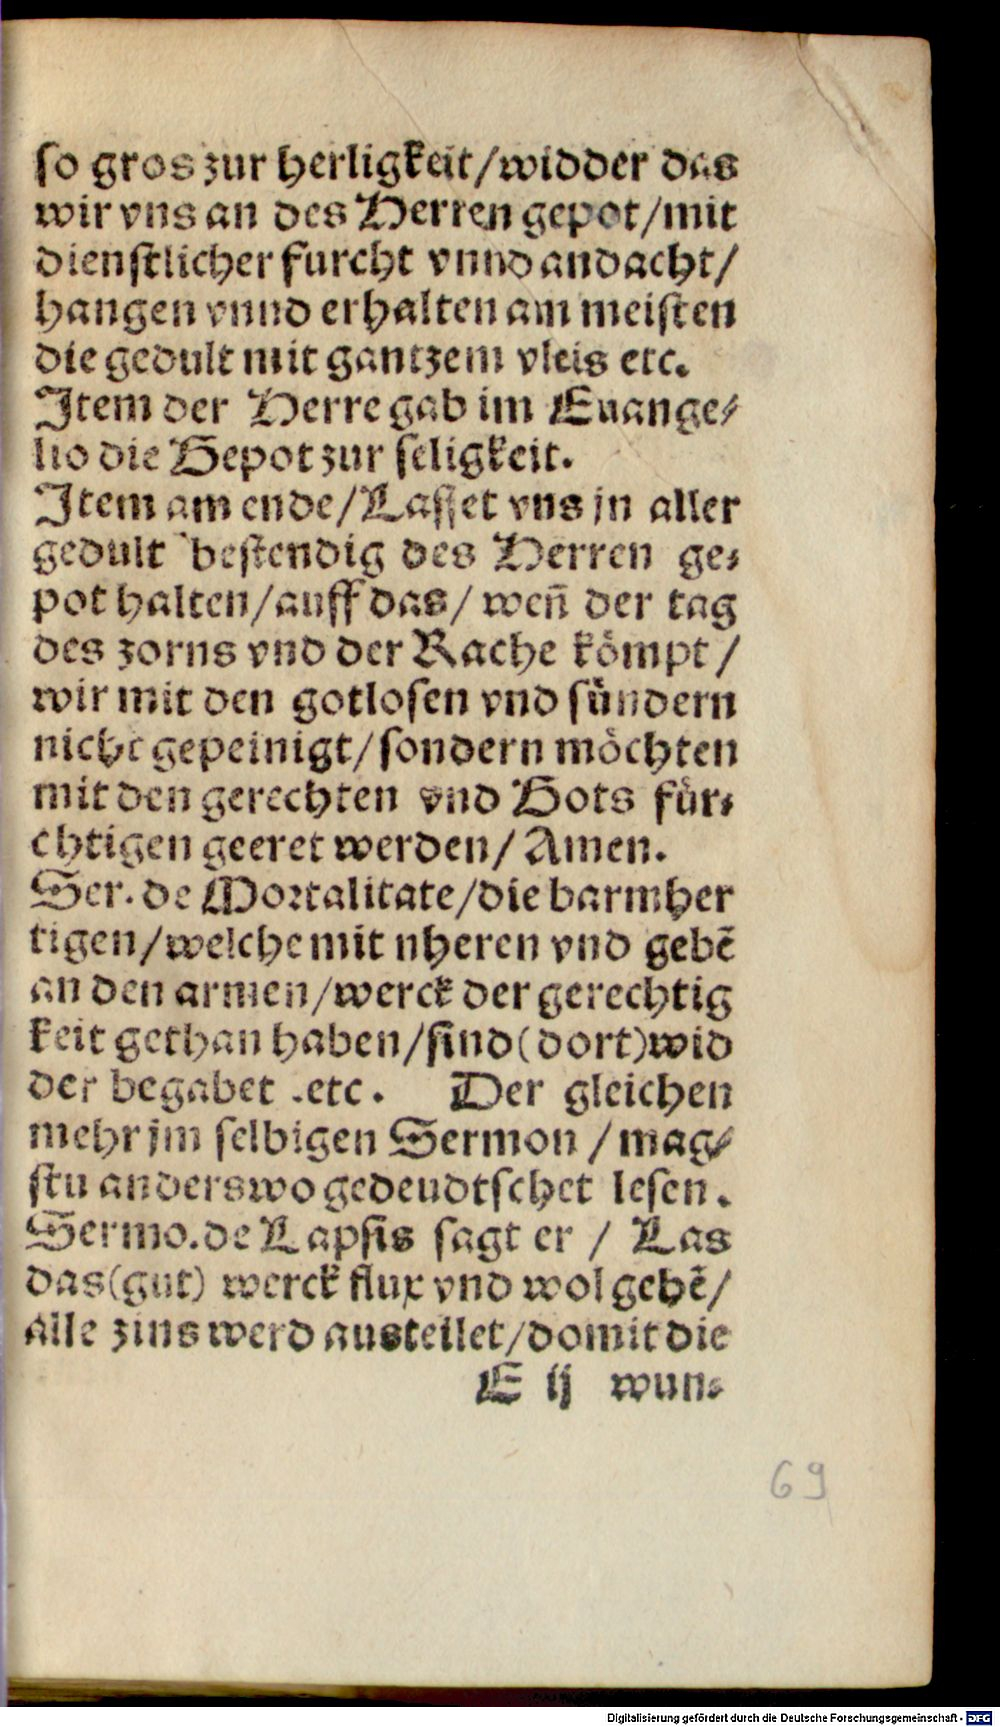 so gros zur herligkeit/widder das
wir vns an des Herren gepot/mit
dienstlicher furcht vnnd andacht/
hangen vnnd erhalten am meisten
die gedult mit gantzem vleis etc.
Jtem der Herre gab im Euange⸗
lio die Gepot zur seligkeit.
Jtem am ende/Lasset vns jn aller
gedult bestendig des Herren ge⸗
pot halten/auff das/ weñ der tag
des zorns vnd der Rache kömpt/
wir mit den gotlosen vnd sündern
nicht gepeinigt/sondern möchten
mit den gerechten vnd Gots für⸗
chtigen geeret werden/Amen.
Ser. de Mortalitate/die barmher
tigen/welche mit nheren vnd gebẽ
an den armen/werck der gerechtig
keit gethan haben/sind(dort)wid
der begabet .etc. Der gleichen
mehr jm selbigen Sermon /mag⸗
stu anderswo gedeudtschet lesen.
Sermo.de Lapsis sagt er / Las
das(gut) werck flux vnd wol gehẽ/
alle zins werd austeilet/domit die
E ij wun⸗
69
Digitalisierung gefördert durch die Deutsche Forschungsgemeinschaft - DFG